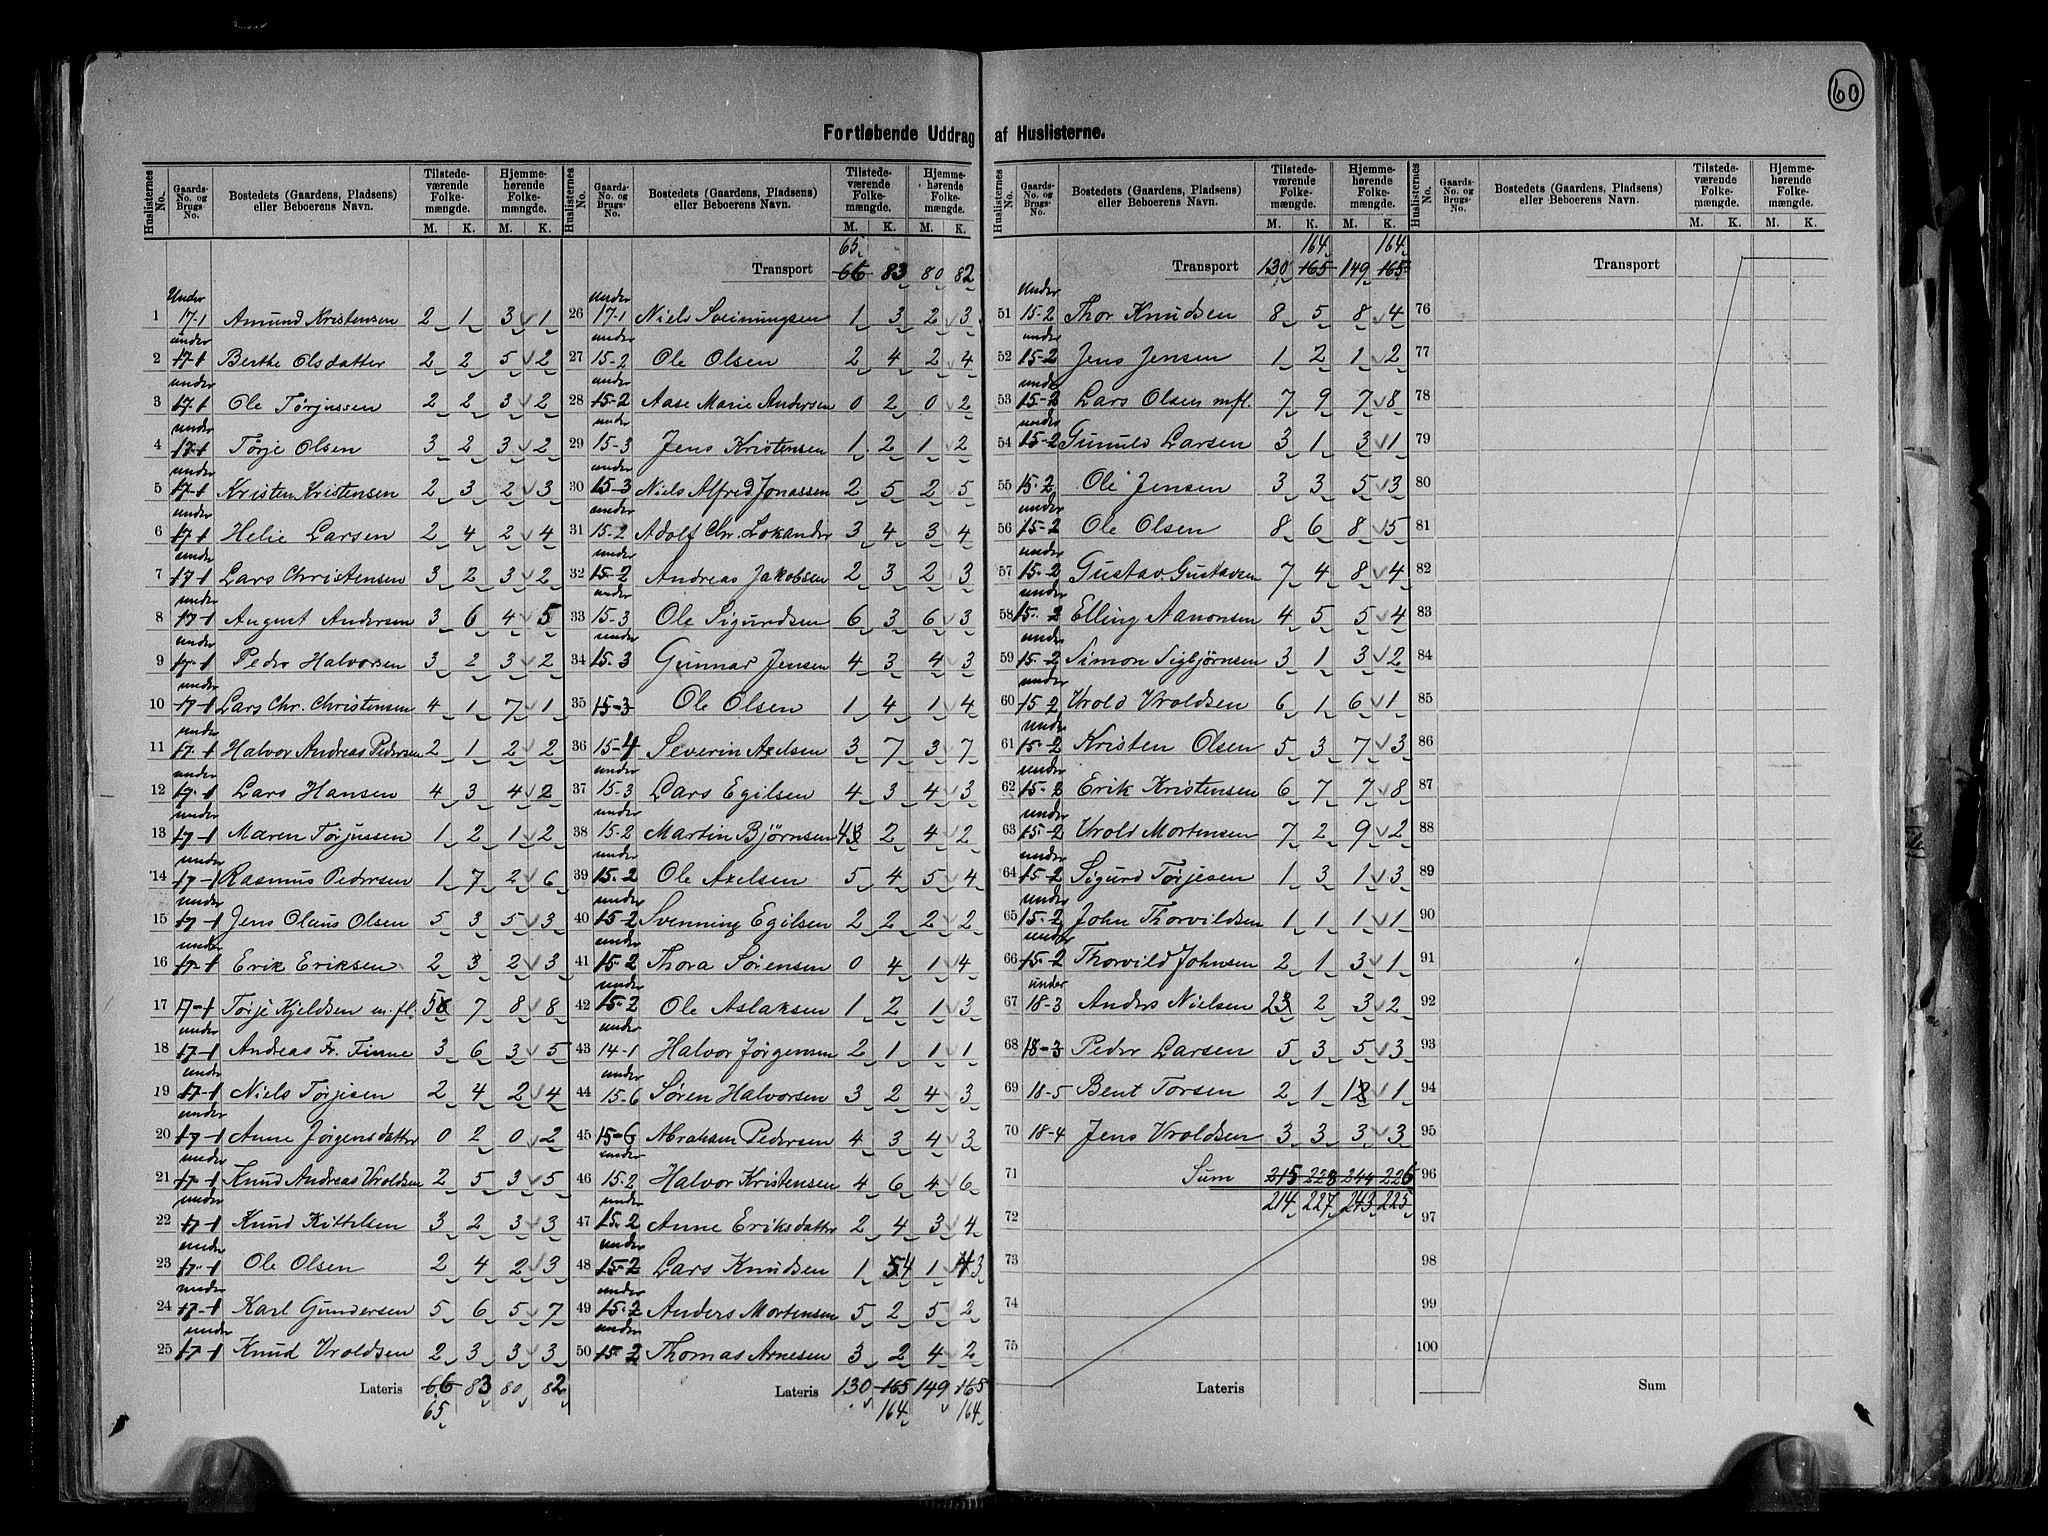 60
Fortløbende Uddrag af Huslisterne.
Huslisternes No. | Gaards-No. og Brugs-No. | Bostedets (Gaardens, Pladsens) eller Beboerens Navn. | Tilstede-værende Folke-mængde. M. K. | Hjemme-hørende Folke-mængde. M. K.
1 Under 17-1 Amund Kristensen 2 1 3 1
2 under 17-1 Berthe Olsdatter 2 2 5 2
3 under 17-1 Ole Tørjussen 2 2 3 2
4 under 17-1 Tørje Olsen 3 2 3 2
5 under 17-1 Kristen Kristensen 2 3 2 3
6 under 17-1 Helie Larsen 2 4 2 4
7 under 17-1 Lars Christensen 3 2 3 2
8 under 17-1 August Andersen 3 6 4 5
9 under 17-1 Peder Halvorsen 3 2 3 2
10 under 17-1 Lars Chr. Christensen 4 1 7 1
11 under 17-1 Halvor Andreas Pedersen 2 1 2 2
12 under 17-1 Lars Hansen 4 3 4 2
13 under 17-1 Maren Tørjussen 1 2 1 2
14 under 17-1 Rasmus Pedersen 1 7 2 6
15 under 17-1 Jens Olaus Olsen 5 3 5 3
16 under 17-1 Erik Eriksen 2 3 2 3
17 17-1 Tørje Kjeldsen m. fl. 5 7 8 8
18 under 17-1 Andreas Fr. Finne 3 6 3 5
19 under 17-1 Niels Tørjesen 2 4 2 4
20 under 17-1 Anne Jørgensdatter 0 2 0 2
21 under 17-1 Knud Andreas Vroldsen 2 5 3 5
22 under 17-1 Knud Kittelsen 3 2 3 3
23 under 17-1 Ole Olsen 2 4 2 3
24 under 17-1 Karl Gundersen 5 6 5 7
25 under 17-1 Knud Vroldsen 2 3 3 3
Lateris 66 83 80 82
65
65
Transport 66 83 80 82
26 under 17-1 Niels Sveinungsen 1 3 2 3
27 under 15-2 Ole Olsen 2 4 2 4
28 under 15-2 Aase Marie Andersen 0 2 0 2
29 under 15-3 Jens Kristensen 1 2 1 2
30 under 15-3 Niels Alfred Jonassen 2 5 2 5
31 under 15-2 Adolf Chr. Lokander 3 4 3 4
32 under 15-2 Andreas Jakobsen 2 3 2 3
33 under 15-3 Ole Sigurdsen 6 3 6 3
34 under 15-3 Gunnar Jensen 4 3 4 3
35 15-3 Ole Olsen 1 4 1 4
36 15-4 Severin Axelsen 3 7 3 7
37 under 15-3 Lars Egilsen 4 3 4 3
38 under 15-2 Martin Bjørnsen 4 2 4 2
39 under 15-2 Ole Axelsen 5 4 5 4
40 under 15-2 Svenning Egilsen 2 2 2 2
41 under 15-2 Thora Sørensen 0 4 1 4
42 under 15-2 Ole Aslaksen 1 2 1 3
43 under 14-1 Halvor Jørgensen 2 1 1 1
44 under 15-6 Søren Halvorsen 3 2 4 3
45 15-6 Abraham Pedersen 4 3 4 3
46 under 15-2 Halvor Kristensen 4 6 4 6
47 under 15-2 Anne Eriksdatter 2 4 3 4
48 under 15-2 Lars Knudsen 1 5 4 1 4 3
49 under 15-2 Anders Mortensen 5 2 5 2
50 under 15-2 Thomas Arnesen 3 2 4 2
Lateris 130 165 149 165
164 164
164 164
Transport 130 165 149 165
51 Under 15-2 Thor Knudsen 8 5 8 4
52 under 15-2 Jens Jensen 1 2 1 2
53 under 15-2 Lars Olsen mfl. 7 9 7 8
54 under 15-2 Gunuld Larsen 3 1 3 1
55 15-2 Ole Jensen 3 3 5 3
56 under 15-2 Ole Olsen 8 6 8 5
57 under 15-2 Gustav Gustavsen 7 4 8 4
58 under 15-2 Elling Aanonsen 4 5 5 4
59 under 15-2 Simon Sigbjørnsen 3 1 3 2
60 under 15-2 Vrold Vroldsen 6 1 6 1
61 under 15-2 Kristen Olsen 5 3 7 3
62 under 15-2 Erik Kristensen 6 7 7 8
63 under 15-2 Vrold Mortensen 7 2 9 2
64 under 15-2 Sigurd Tørjesen 1 3 1 3
65 under 15-2 John Thorvildsen 1 1 1 1
66 under 15-2 Thorvild Johnsen 2 1 3 1
67 under 18-3 Anders Nielsen 2 3 2 3 2
68 18-3 Peder Larsen 5 3 5 3
69 18-5 Bent Torsen 2 1 1 2 1
70 18-4 Jens Vroldsen 3 3 3 3
71 Sum 215 228 244 226
72 214 227 243 225
73
74
75
Lateris
Transport
76
77
78
79
80
81
82
83
84
85
86
87
88
89
90
91
92
93
94
95
96
97
98
99
100
Sum